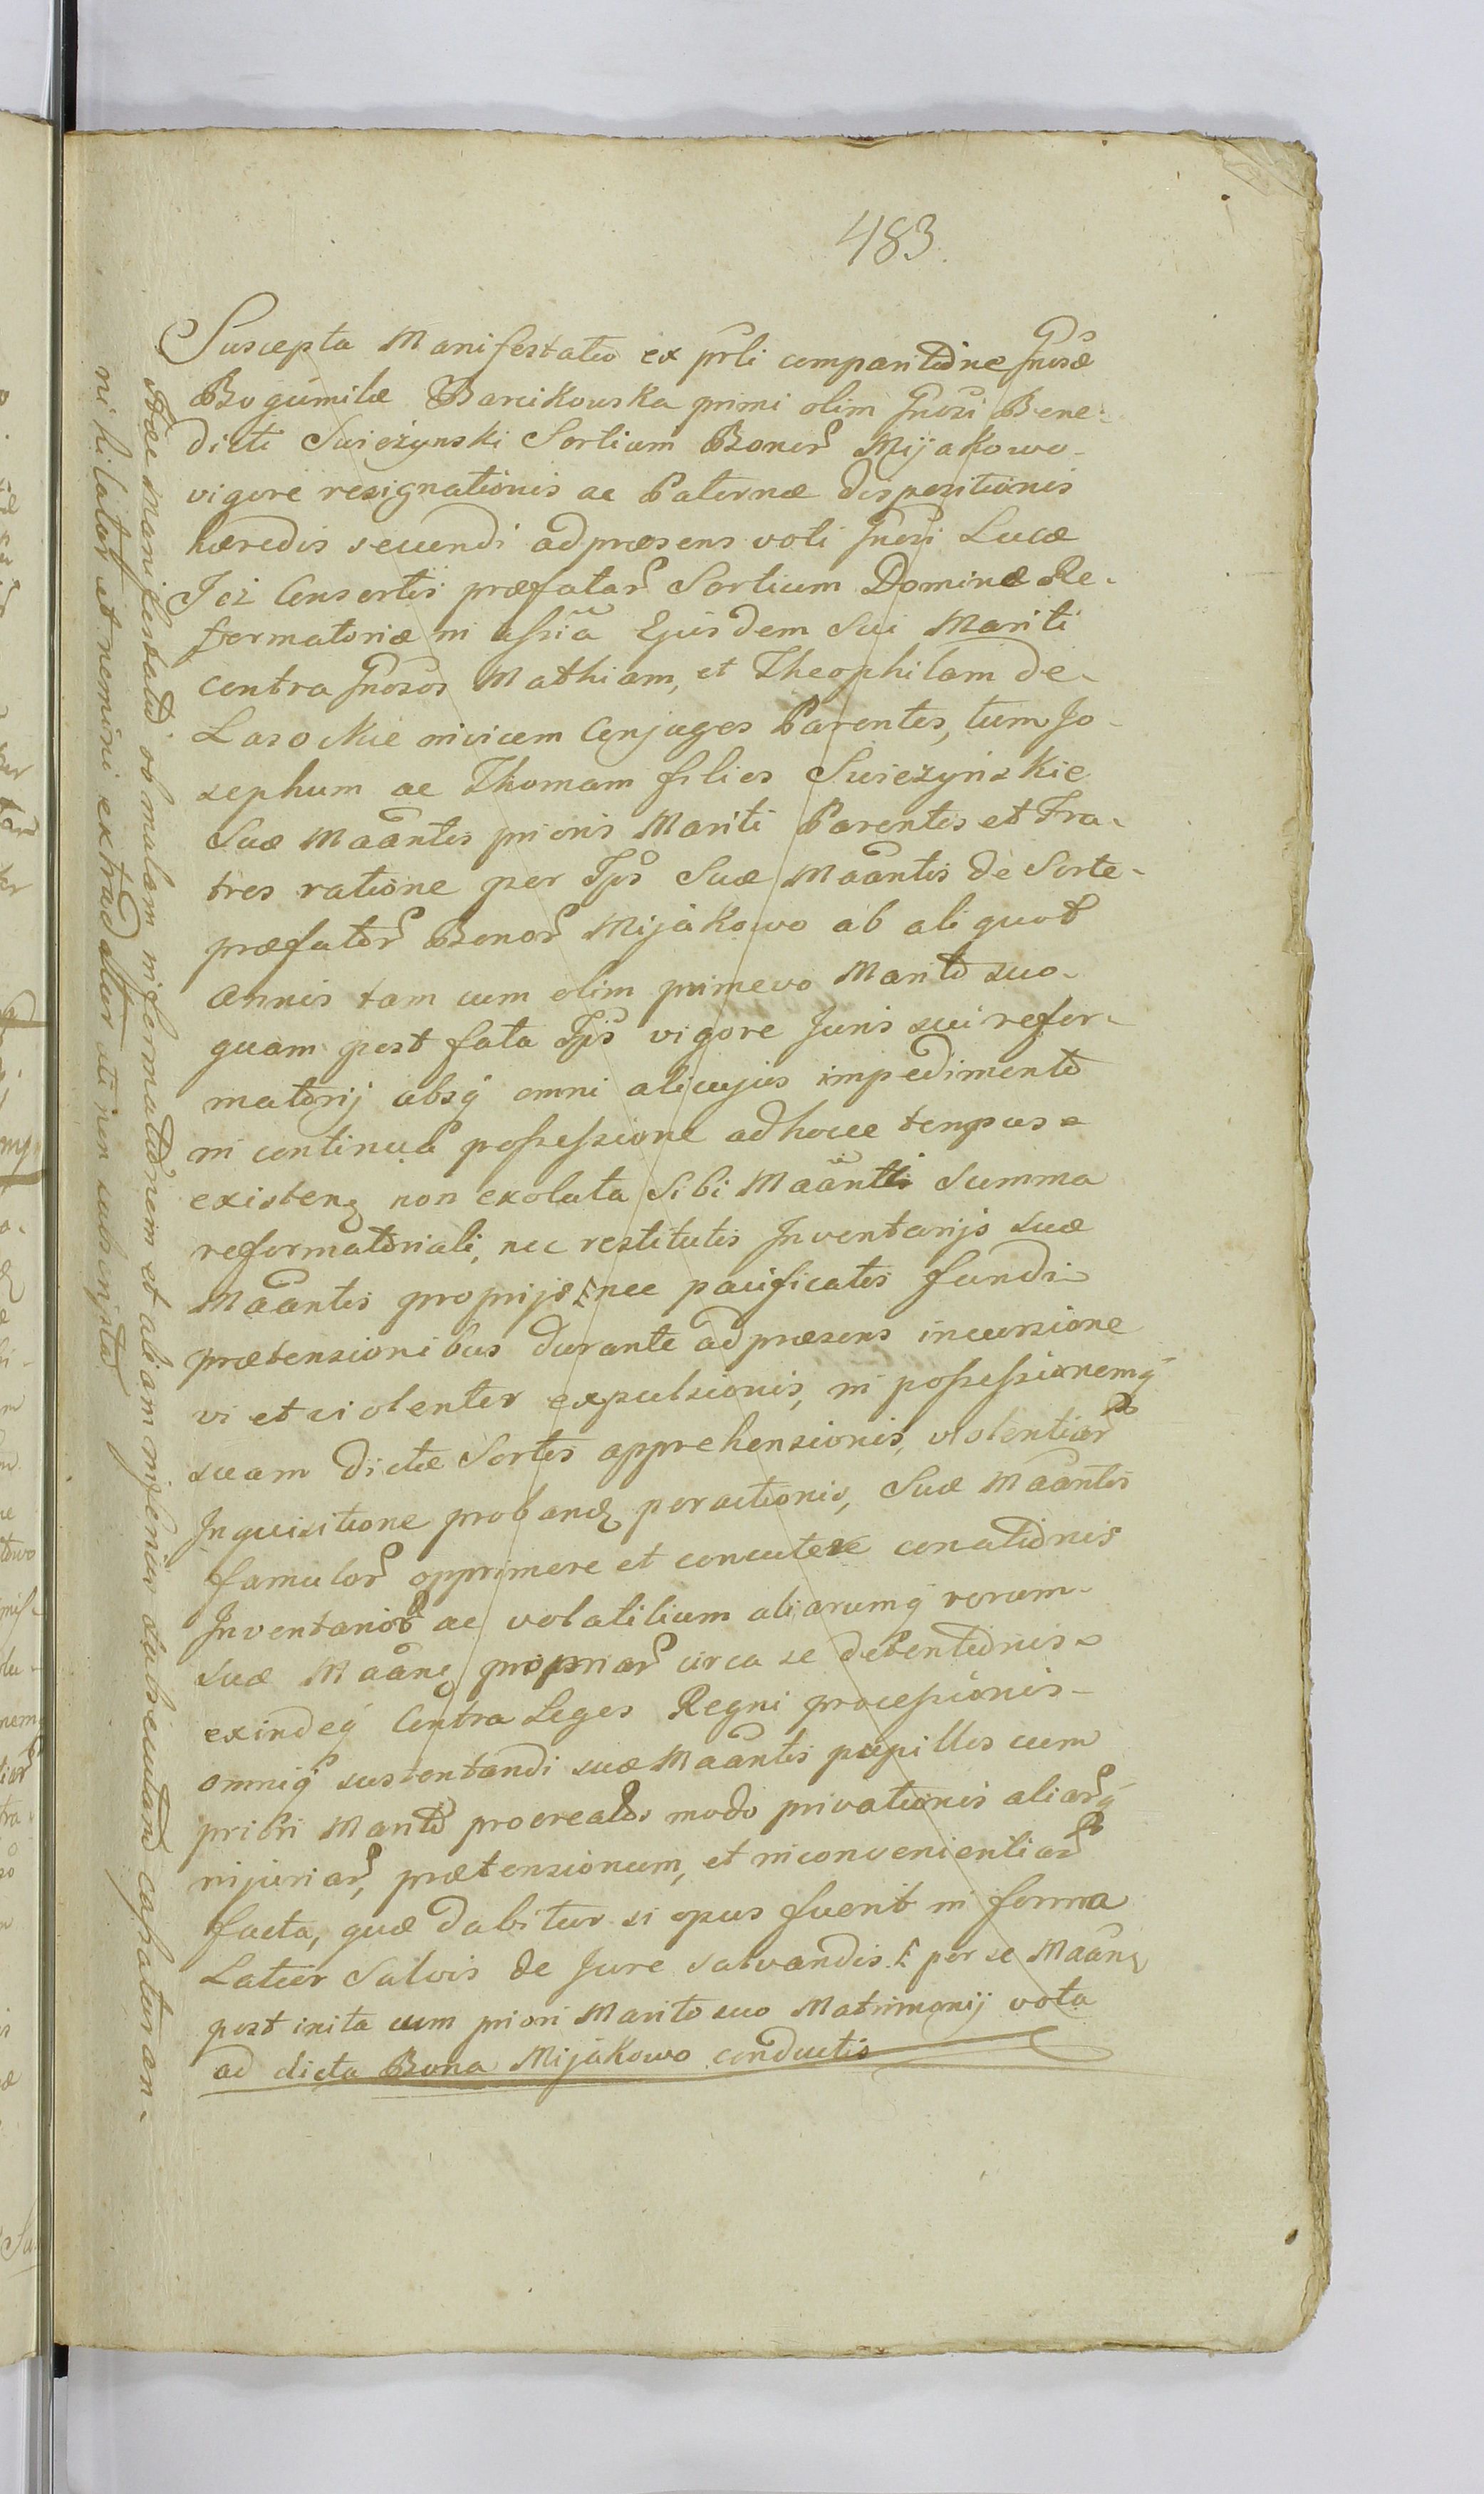 483.
Suscepta Manifestatio ex prli comparitione Gnosæ
Bogumilæ Barcikowska primi olim Gnosi Bene-
dicti Swiezynski Sortium Bonor Mijakowo
vigore resignationis ac Paternæ dispositionis
hæredis secundi ad præsens voti Gnosi Lucæ
Jez Consortis præfatar Sortium Dominæ Re-
formatoriæ in assia Ejusdem Sui Mariti
contra Gnosos Mathiam, et Theophilam de
Lasockie invicem Conjuges Parentes, tum Jo-
sephum ac Thomam filios Swiezynskie
Suæ Maantis prioris Mariti Parentes et Fra-
tres ratione per Ips Suæ Maantis de Sorte
præfator Bonor Mijakowo ab aliquot
annis tam cum olim primevo Marito suo
quam post fata Ips vigore Juris sui refor-
matorij absq omni alicujus impedimento
in continua possessione ad hocce tempus
existen non exoluta Sibi Maanti Summa
reformatoriali, nec restitutis Inventarijs suæ
Maantis proprijs nec pacificatis fundi
prætensionibus durante ad præsens incursione
vi et violenter expulsionis, in possessionemq
suam dictæ Sortis apprehensionis, violentiar
Inquisitione proban peractionis, Suæ Maantis
famulor opprimere et concutere conationis
Inventarior ac volatilium aliarumq rerum
suæ Maan propriar circa se detentionis
exindeq Contra Leges Regni processionis
omniq sustentandi suæ Maantis pupillos cum
priori Marito procreatos modo privationis aliarq
injuriar, prætensionum, et inconvenientiar
facta, quæ dabitur si opus fuerit in forma
Latior Salvis de Jure salvandis. per se Maan
post inita cum priori Marito suo Matrimonij vota
ad dicta Bona Mijakowo conductis
Hæc Manifestatio ob malam informationem et aliam inferius subsecutam cassatur an-
nihilatur et nemini extradatur uti non subscripta